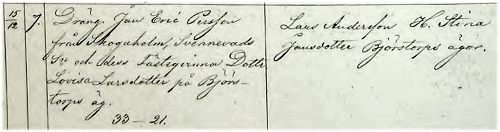 15/12 7. Dräng. Jan Eric Persson
från Skogaholm, Svennevads
Sn och dess Fästeqvinna Dottr
Lovisa Larsdotter på Björs-
torps äg.
33 — 21.
Lars Andersson H. Stina
Jansdotter Björstorps ägor.